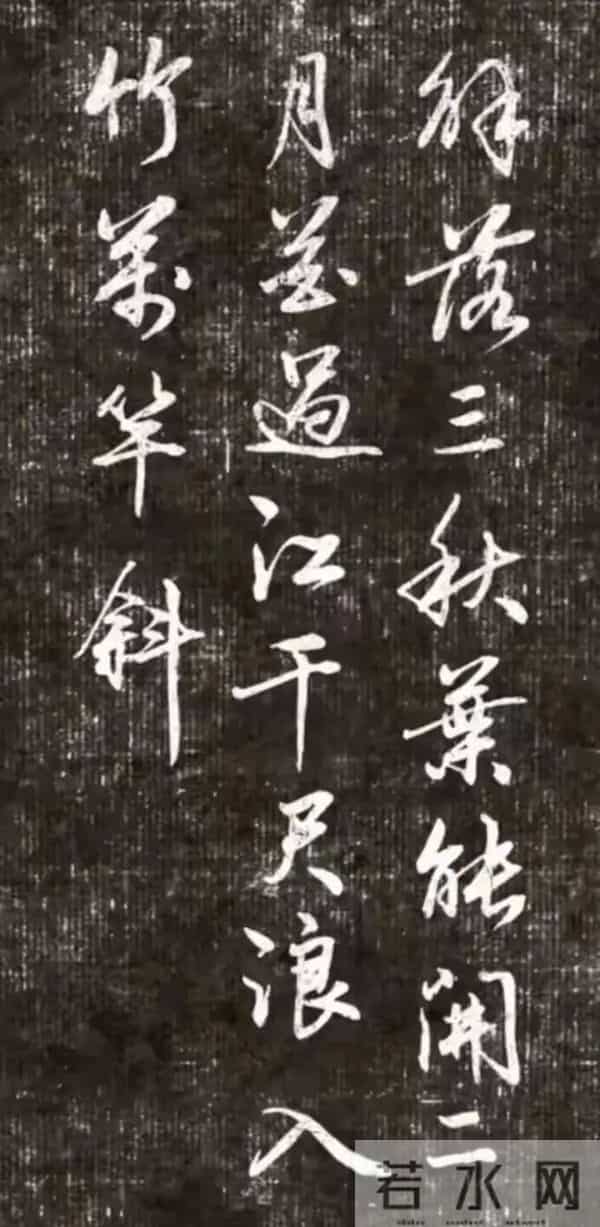 解落三秋葉能開二
月花過江千尺浪入
竹萬竿斜
若水网